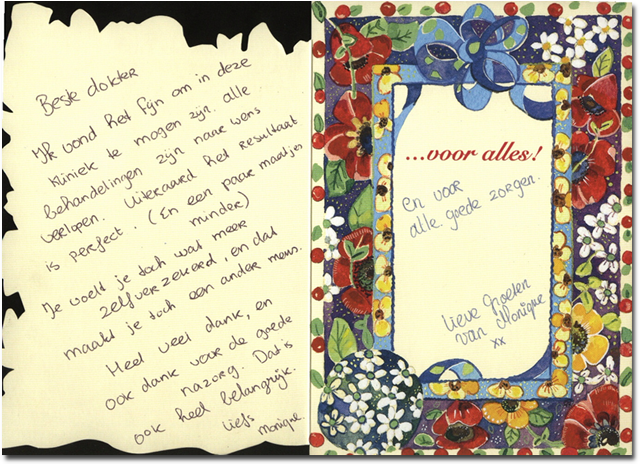 Beste dokter
Ik vond het fijn om in deze
kliniek te mogen zijn. alle
behandelingen zijn naar wens
verlopen. Uiteraard het resultaat
is perfect. (En een paar maatjes
minder)
Je voelt je toch wat meer
zelfverzekerd, en dat
maakt je toch een ander mens.
Heel veel dank, en
ook dank voor de goede
nazorg. Dat is
ook heel belangrijk.
Liefs
Monique.
...voor alles!
En voor
alle goede zorgen.
Lieve Groeten
van Monique
xx